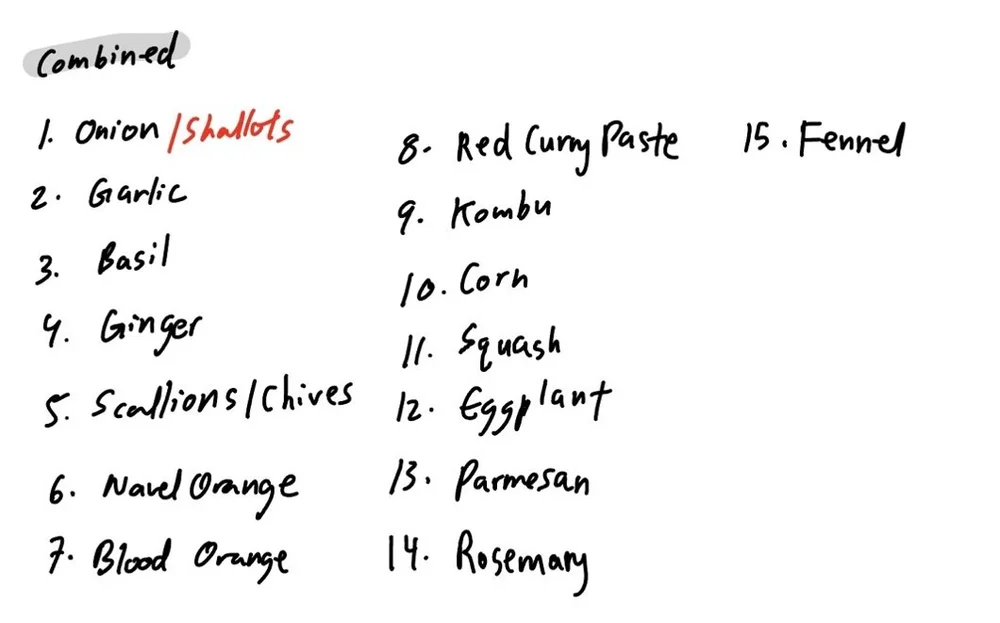 Combined
1. Onion/Shallots
2. Garlic
3. Basil
4. Ginger
5. Scallions/Chives
6. Navel Orange
7. Blood Orange
8. Red Curry Paste
9. Kombu
10. Corn
11. Squash
12. Eggplant
13. Parmesan
14. Rosemary
15. Fennel